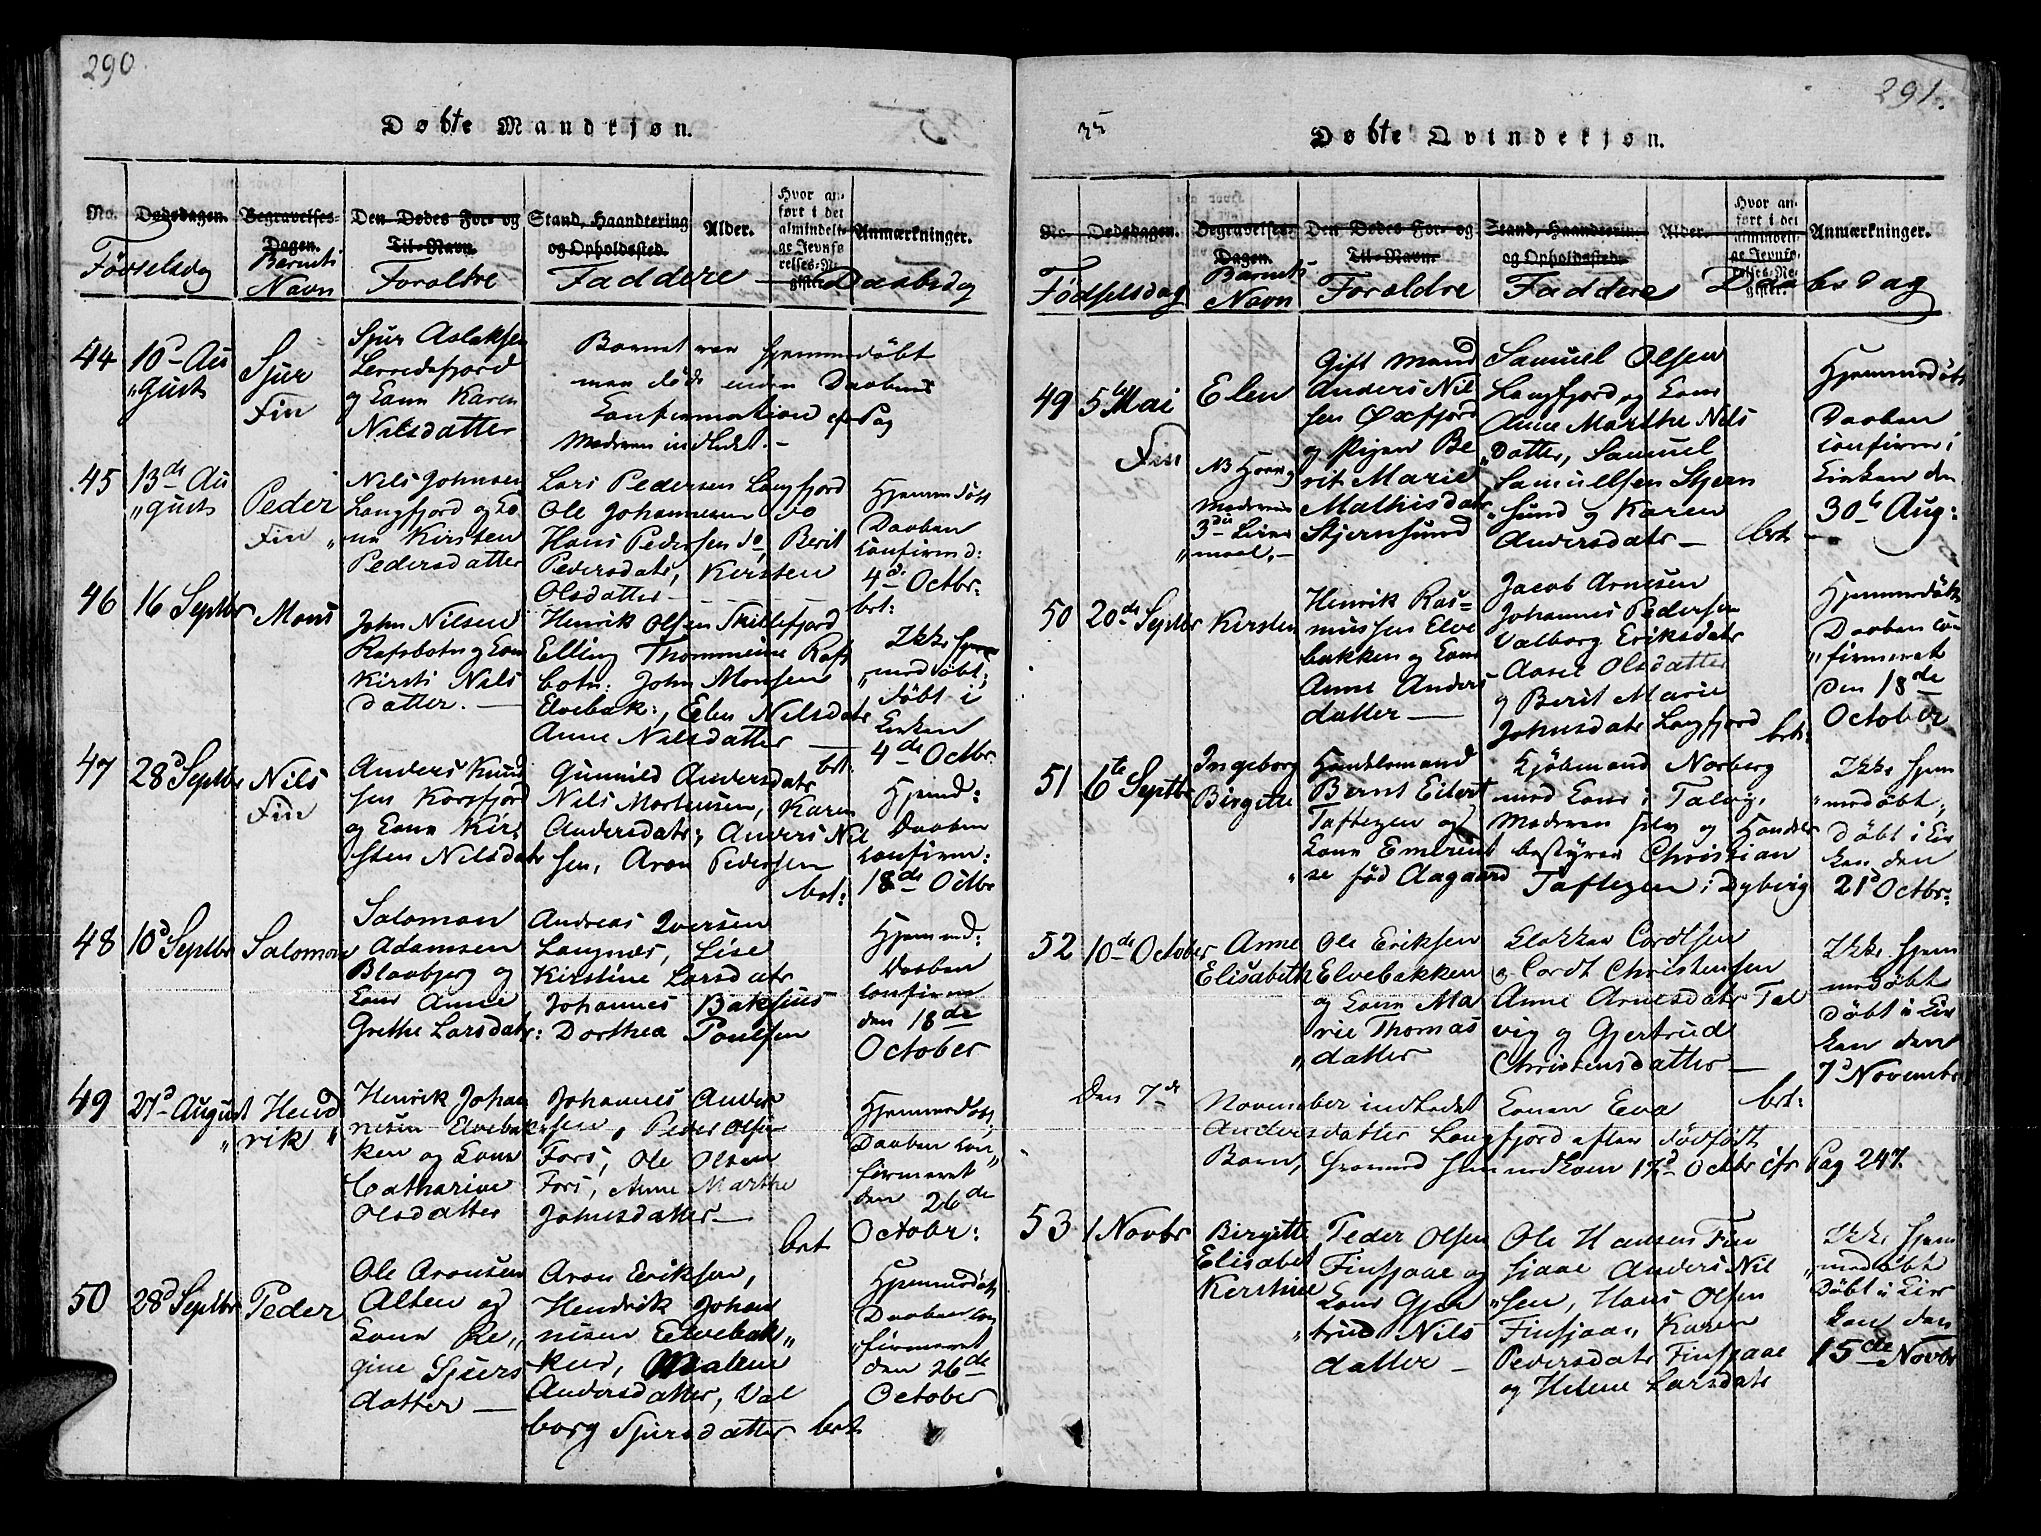 290
Døbte Mandkjøn.
No. Dødsdagen. Begravelses-Dagen. Den Dødes For- og Til-Navn. Stand, Haandtering og Opholdssted. Alder. Hvor an-ført i det almindeli-ge Jevnfø-relses-Re-gister. Anmærkninger.
Fødselsdag
Barnets Navn
Foroldre
Faddere
Daabsdag
44
10d Au
"gust
Sjur
Fin
Sjur Aslaksen
Lerredsfjord
og Kone Karen
Nilsdatter
Barnet var hjemmedøbt
men døde uden Daabens
Confirmation cfr Pag
Moderen indledt. -
45
13de Au
"gust
Peder
Fin
Nils Johnsen
Langfjord og Ko
ne Kirsten
Pedersdatter
Lars Pedersen Langfjord
Ole Johannesen do
Hans Pedersen do, Berit
Pedersdatr, Kirsten
Olsdatter
Hjemmedøbt
Daaben
confirmd:
4d Octbr.
brt:
46
16 Septbr
Mons
John Nilsen
Rafsbotn og Kone
Kirsti Nils
datter. —
Henrik Olsen Skillefjord
Elling Thommesen Rafs
botn: John Monsen
Elvebak:, Elen Nilsdatr
Anne Nilsdatter —
brt.
Ikke hjem
"medøbt;
døbt i
Kirken
4de Octbr.
47
28d Septbr
Nils
Fin
Anders Knud
sen Korsfjord
og Kone Kir,
sten Nilsdatr
Gunnild Andersdatr
Nils Mortensen, Karen
Andersdatr, Anders Nil
sen, Aron Pedersen
brt:
Hjemd:
Daaben
confirm:
18de Octbr
48
10d Septbr
Salomon
Salomon
Adamsen
Blaabjerg og
Kone Anne
Grethe Larsdatr:
Andreas Iversen
Langnes, Lise
Kirstine Larsdatr
Johannes Baksius
Dorthea Poulsen
Hjemmd:
Daaben
confirm
den 18de
October
49
27d August
Hend
"rik"
Henrik Johan
nisen Elvebak
ken og Kone
Catharine
Olsdatter
Johannes Ander
sen, Peder Olsen
Fors, Ole Olsen
Fors, Anne Marthe
Johnsdatter —
brt
Hjemmedøbt,
Daaben con
firmeret
den 26de
Octobr:
50
28d Septbr
Peder
Ole Aronsen
Alten og
Kone Re„
gine Sjurs
datter —
Aron Eriksen,
Hendrik Johan
nisen Elvebak„
ken, Malene
Andersdatter, Val
borg Sjursdatter
brt
Hjemmedøbt
Daaben con
"firmeret
den 26de
October
291.
Døbte Qvindekjøn.
No. Dødsdagen. Begravelses-Dagen. Den Dødes For- og Til-Navn. Stand, Haandtering og Opholdssted. Alder. Hvor an-ført i det almindeli-ge Jevnfø-relses-Re-gister. Anmærkninger.
Fødselsdag
Barnets Navn
Foroldre
Faddere
Daabsdag
49
5te Mai
Fin
Elen
NB
Moderens
3die Leier
"maal. —
Gift Mand
Anders Nil
sen Øxfjord
og Pigen Be
rit Marie
Mathisdatr
Stjernsund
Samuel Olsen
Langfjord og Kone
Anne Marthe Nils
"datter, Samuel
Samuelsen Stjern
"sund og Karen
Andersdatr —
brt
Hjemmedøbt
Daaben
confirm i
Kirken den
30te Aug:
50
20de Septbr
Kirsten
Henrik Ras=
mussen Elve
bakken og Kone
Anne Anders
datter —
Jacob Arnesen
Johannes Pedersen
Valborg Eriksdatr
Aase Olsdatter
og Berit Marie
Johnsdatr Langfjord
brt:
Hjemmedøbt
Daaben con
"firmeret
den 18de
October
51
6te Septbr
Ingeborg
Birgitte
Handelsmand
Bernt Eilert
Taftezen og
Kone Emeren
"se fød Aagaard
Kjøbmand Norberg
med Kone i Talvig,
Moderen selv og Handels
bestyrer Christian
Taftezen i Dybvig
Ikke hjem
"medøbt,
døbt i Kir
ken den
21d Octbr:
52
10de October
Anne
Elisabeth
Ole Eriksen
Elvebakken
og Kone Ma
rie Thomas
"datter
Klokker Cordtsen
og Cordt Christensen
Anne Arnesdatr Tal
vig og Gjertrud
Christensdatter —
brt:
Ikke hjem
medøbt
døbt i Kir
ken den
7d Novembr
Den 7de November indledet Konen Eva
Andersdatter Langfjord efter dødfødt
Barn, hvormed hun nedkom 17d Octbr cfr Pag 247.
53
1 Novbr
Birgitte
Elisabet
Kerstine
Peder Olsen
Finsjaae og
Kone Gjer
"trud Nils
datter —
Ole Hansen Fin
sjaae Anders Nil
"sen, Hans Olsen
Finsjaa, Karen
Pedersdatr Finsjaae
og Helene Larsdatr
Ikke hjem
"medøbt
døbt i Kir
ken den
15de Novbr